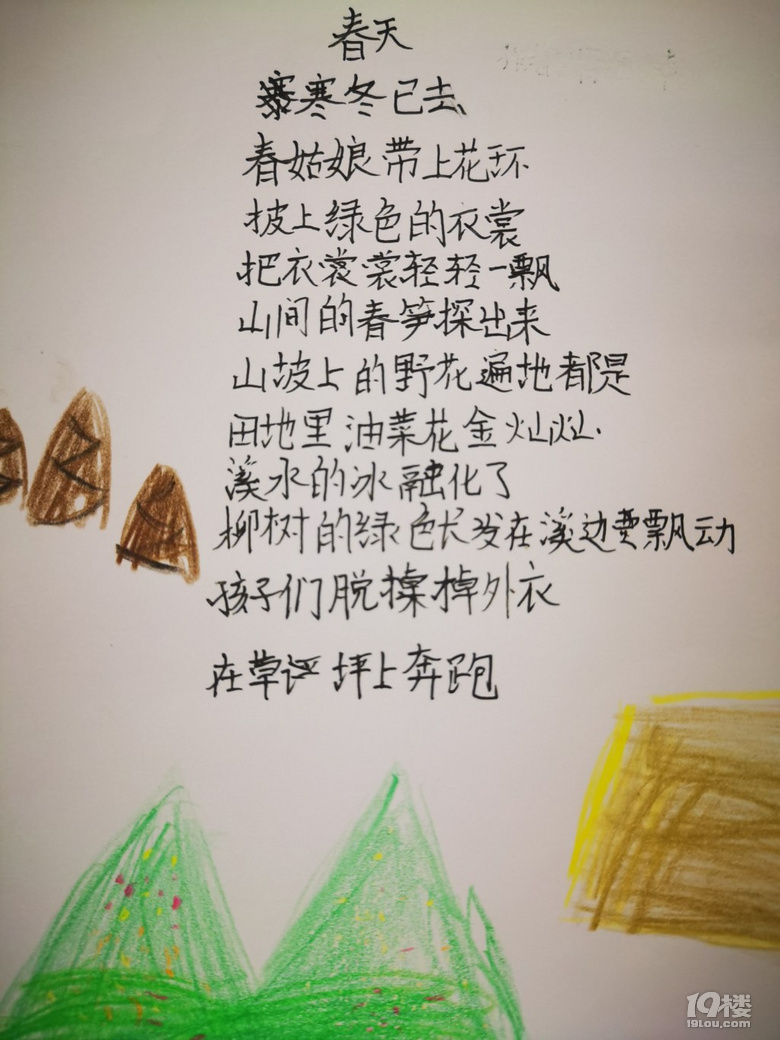 春天
寒冬已去、
春姑娘带上花环
披上绿色的衣裳
把衣裳裳轻轻一飘
山间的春笋探出来
山坡上的野花遍地都是
田地里油菜花金灿灿.
溪水的冰融化了
柳树的绿色长发在溪边飘动
孩子们脱掉外衣
在草坪上奔跑
19楼
19lou.com